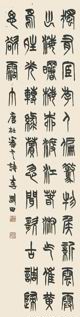 獨有宦游人偏驚物候新雲霞
出海曙梅柳渡江春淑气催黃
鳥晴光轉綠蘋忽聞歌古調歸
思欲霑巾 唐杜審言詩